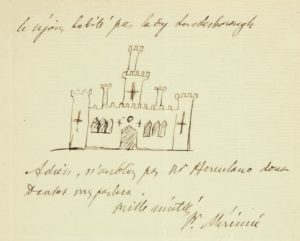 le séjour habité par lady Londesborough
Adieu, n'oubliez pas Mr Herculano dont
Dantas vous parlera.
mille amitiés
Pr. Mérimée